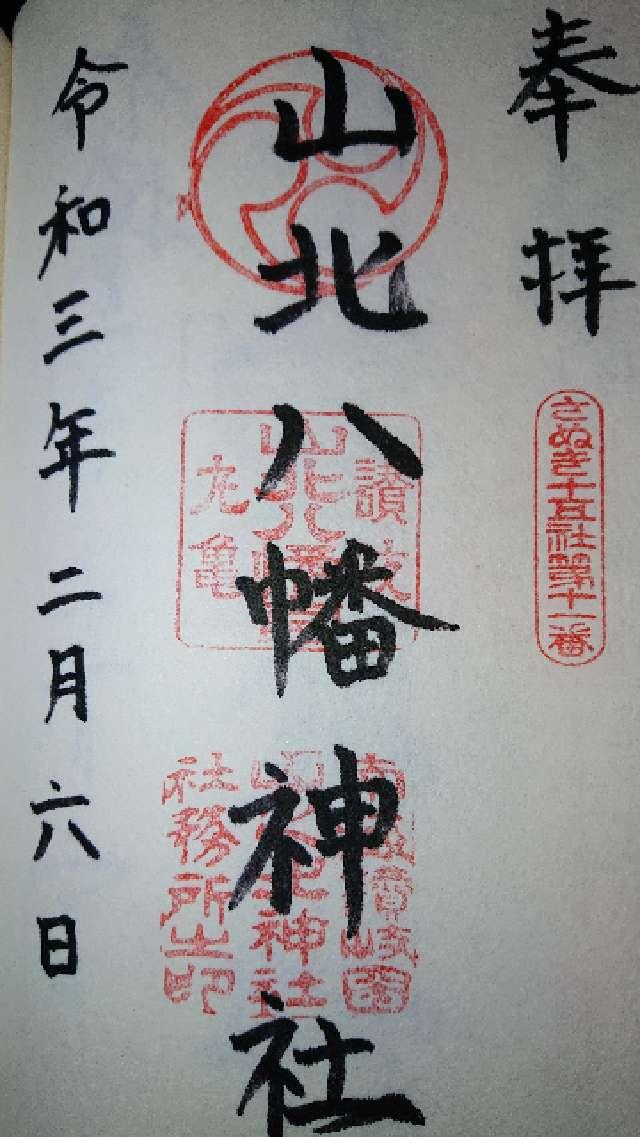 奉拝
さぬき十五社第十一番
山北八幡神社
讃岐
山北八幡宮
丸亀
社務所之印
令和三年二月六日